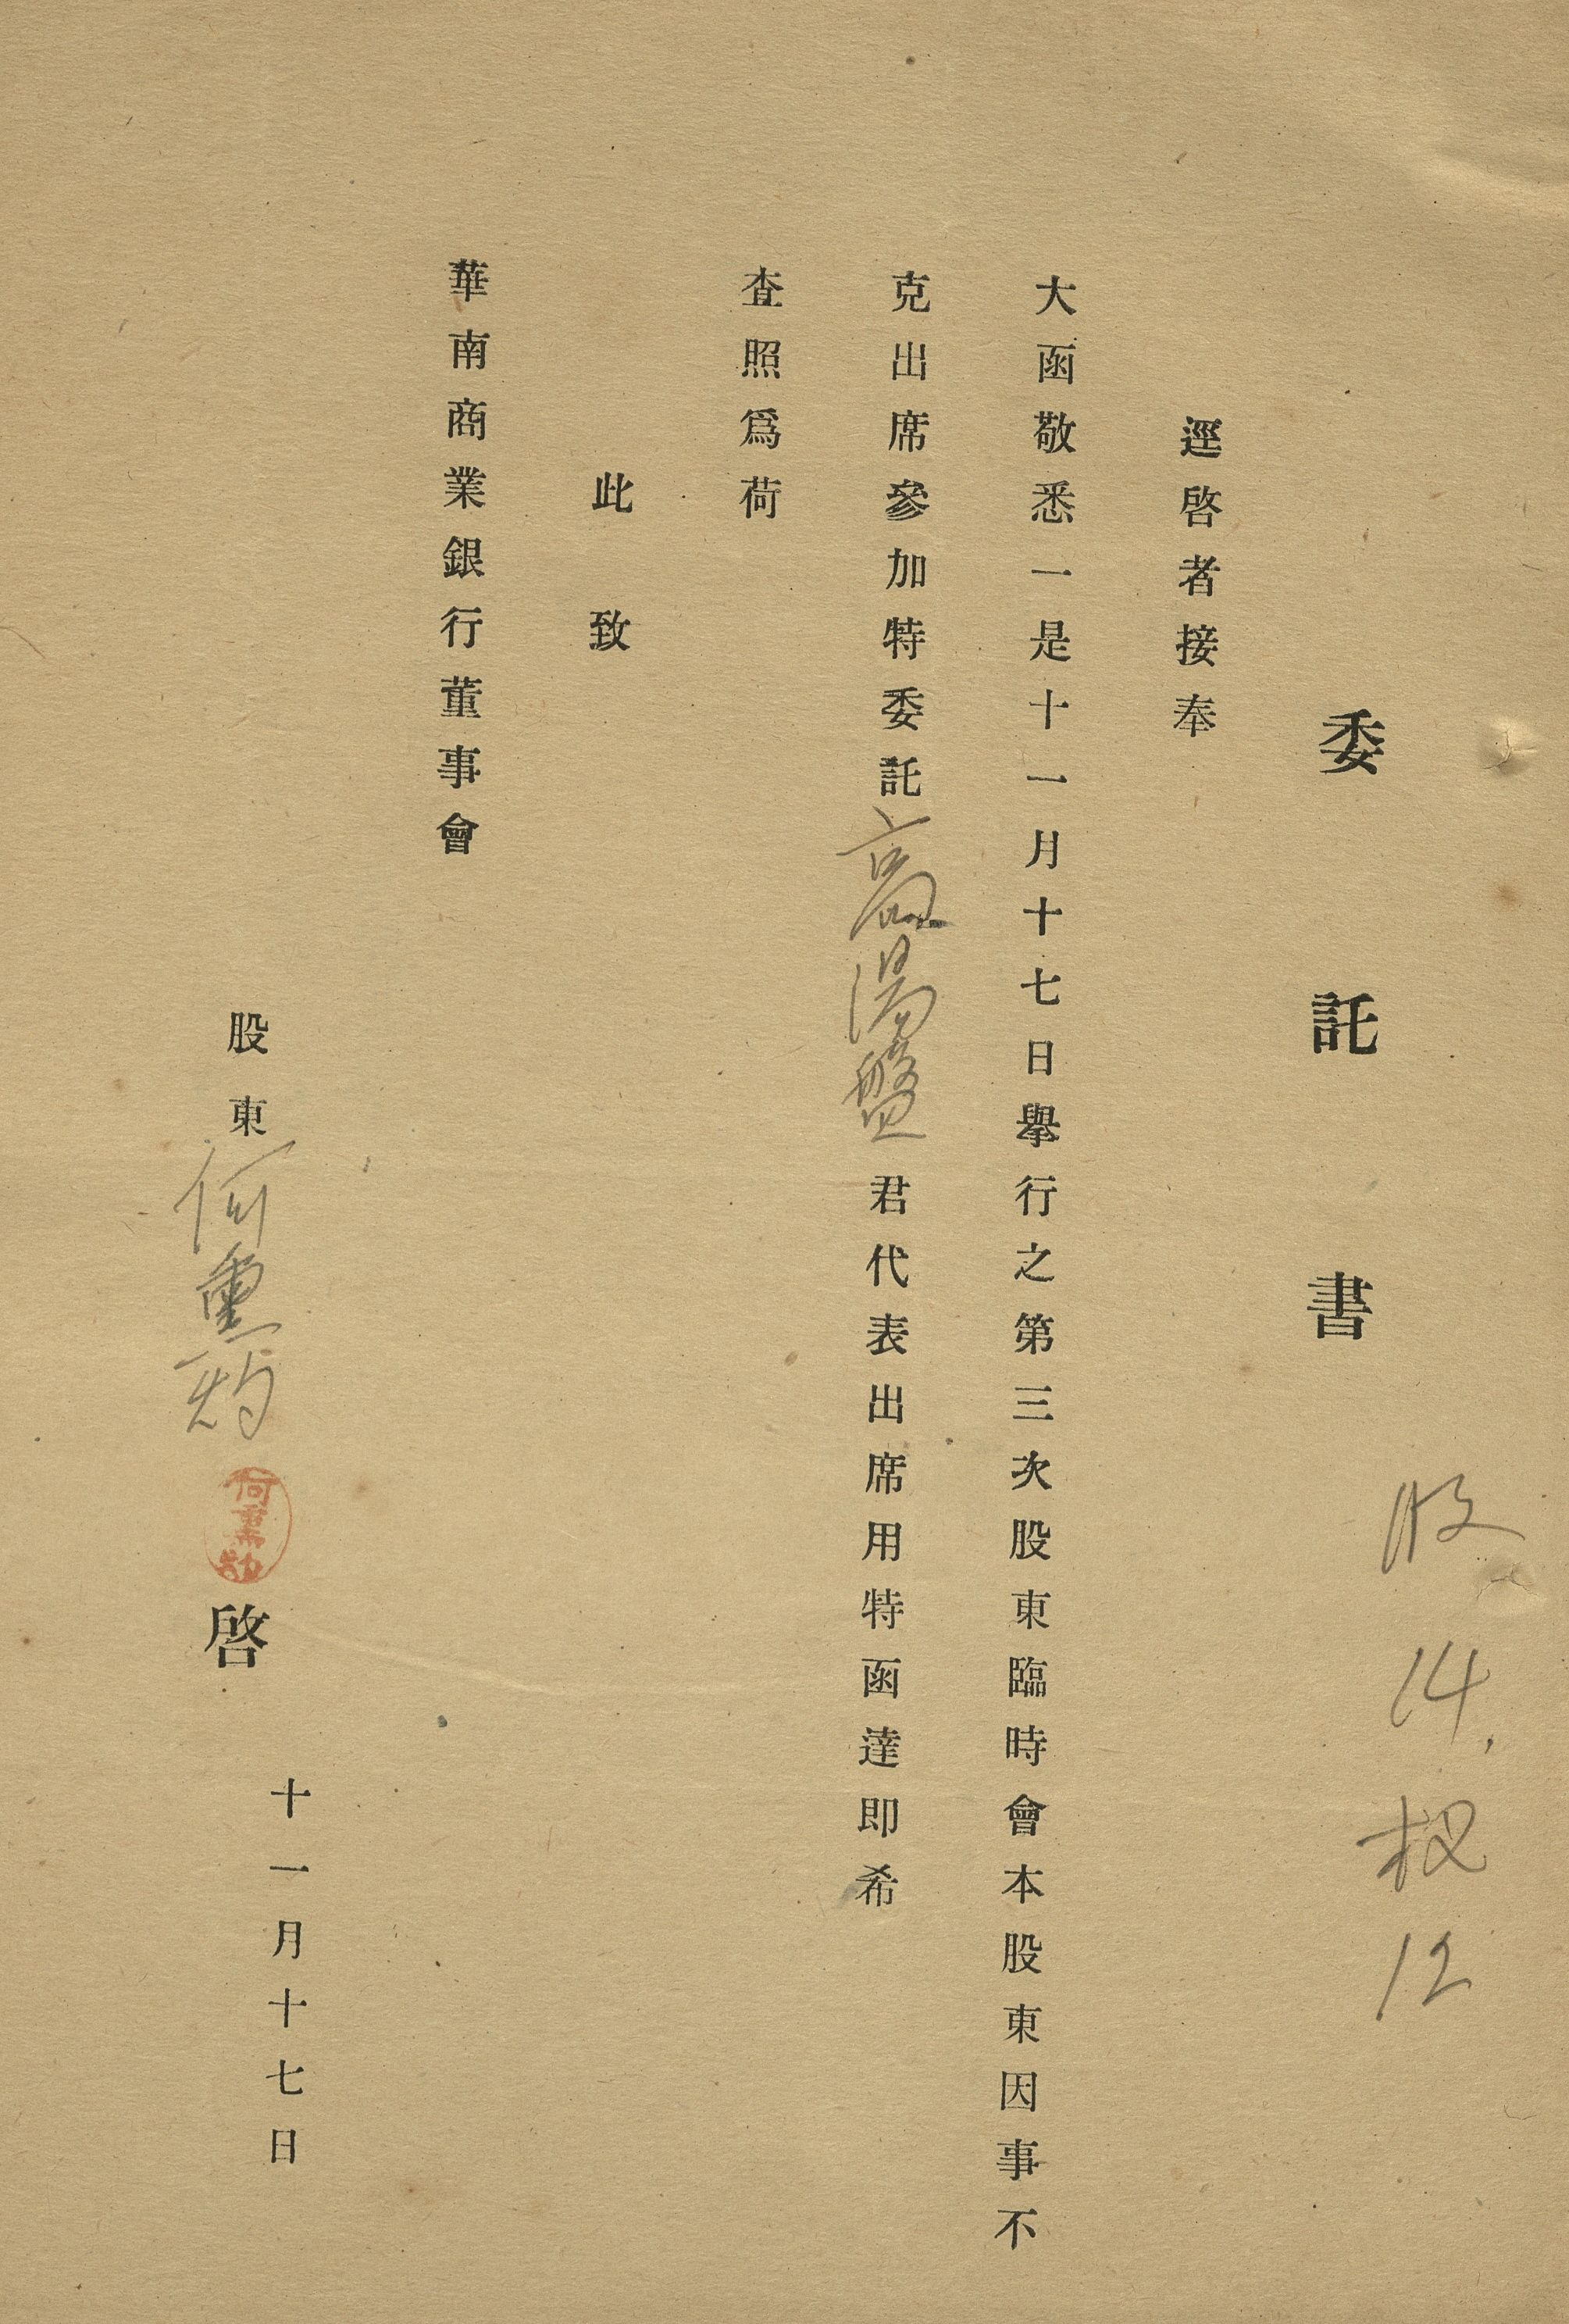 股 14, 权 12
委託書
逕啓者接奉
大函敬悉一是十一月十七日舉行之第三次股東臨時會本股東因事不
克出席參加特委託高湯盤君代表出席用特函達即希
查照爲荷
此致
華南商業銀行董事會
股東何熏灼 啓
十一月十七日